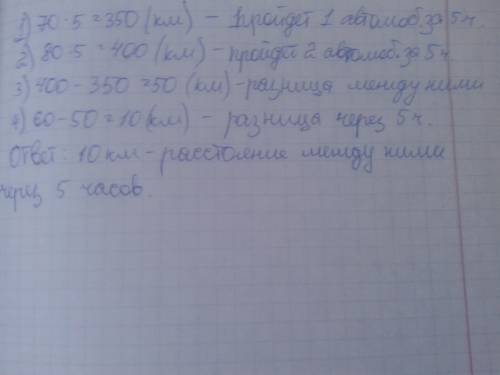 1) 70·5=350 (км) – 1 пройдет 1 автомоб. за 5 ч.
2) 80·5=400 (км) – пройдет 2 автомоб. за 5 ч.
3) 400-350=50 (км) - разница между ними
4) 60-50=10 (км) - разница через 5 ч.
Ответ: 10 км - расстояние между ними
через 5 часов.